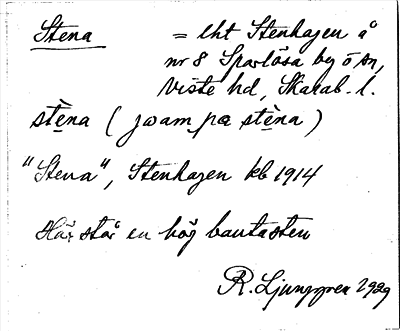 Stena = lht Stenhagen å
nr 8 Sparlösa by o sn,
Viste hd, Skarab. l.
stèna ( jwam pa stèna )
"Stena", Stenhagen kb 1914
Här står en hög bautasten
R. Ljunggren 1929